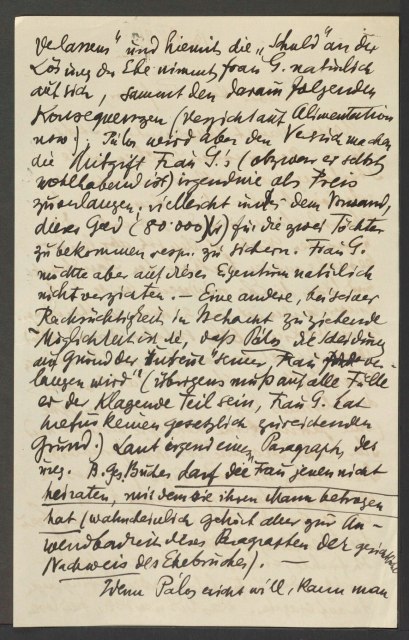 Verlassens" und hiemit die „Schuld" an der
Lösung der Ehe nimmt Frau G. natürlich
auf sich, sammt den daraus folgenden
Konsequenzen (Verzicht auf Alimentation
usw.), Pálos wird aber den Versuch machen,
die Mitgift Frau G.'s (obzwar er selbst
wohlhabend ist) irgendwie als Preis
zu verlangen, vielleicht unter dem Vorwand,
dieses Geld (80.000 K) für die zwei Töchter
zu bekommen resp. zu sichern. Frau G.
möchte aber auf dieses Eigentum natürlich
nicht verzichten. — Eine andere, bei seiner
Rachsüchtigkeit in Betracht zu ziehende
Möglichkeit ist die, daß Pálos die Scheidung
auf Grund der Untreue seiner Frau ver-
langen wird" (übrigens muß auf alle Fälle
er der klagende Teil sein, Frau G. hat
hiefür keinen gesetzlich zureichenden
Grund.) Laut irgend einem Paragraph des
ung. B. Gs. Buches darf die Frau jenen nicht
heiraten, mit dem sie ihren Mann betrogen
hat (wahrscheinlich gehört aber zur An-
wendbarkeit dieses Paragraphen der gerichtliche
Nachweis des Ehebruches). —
Wenn Pálos nicht will, kann man